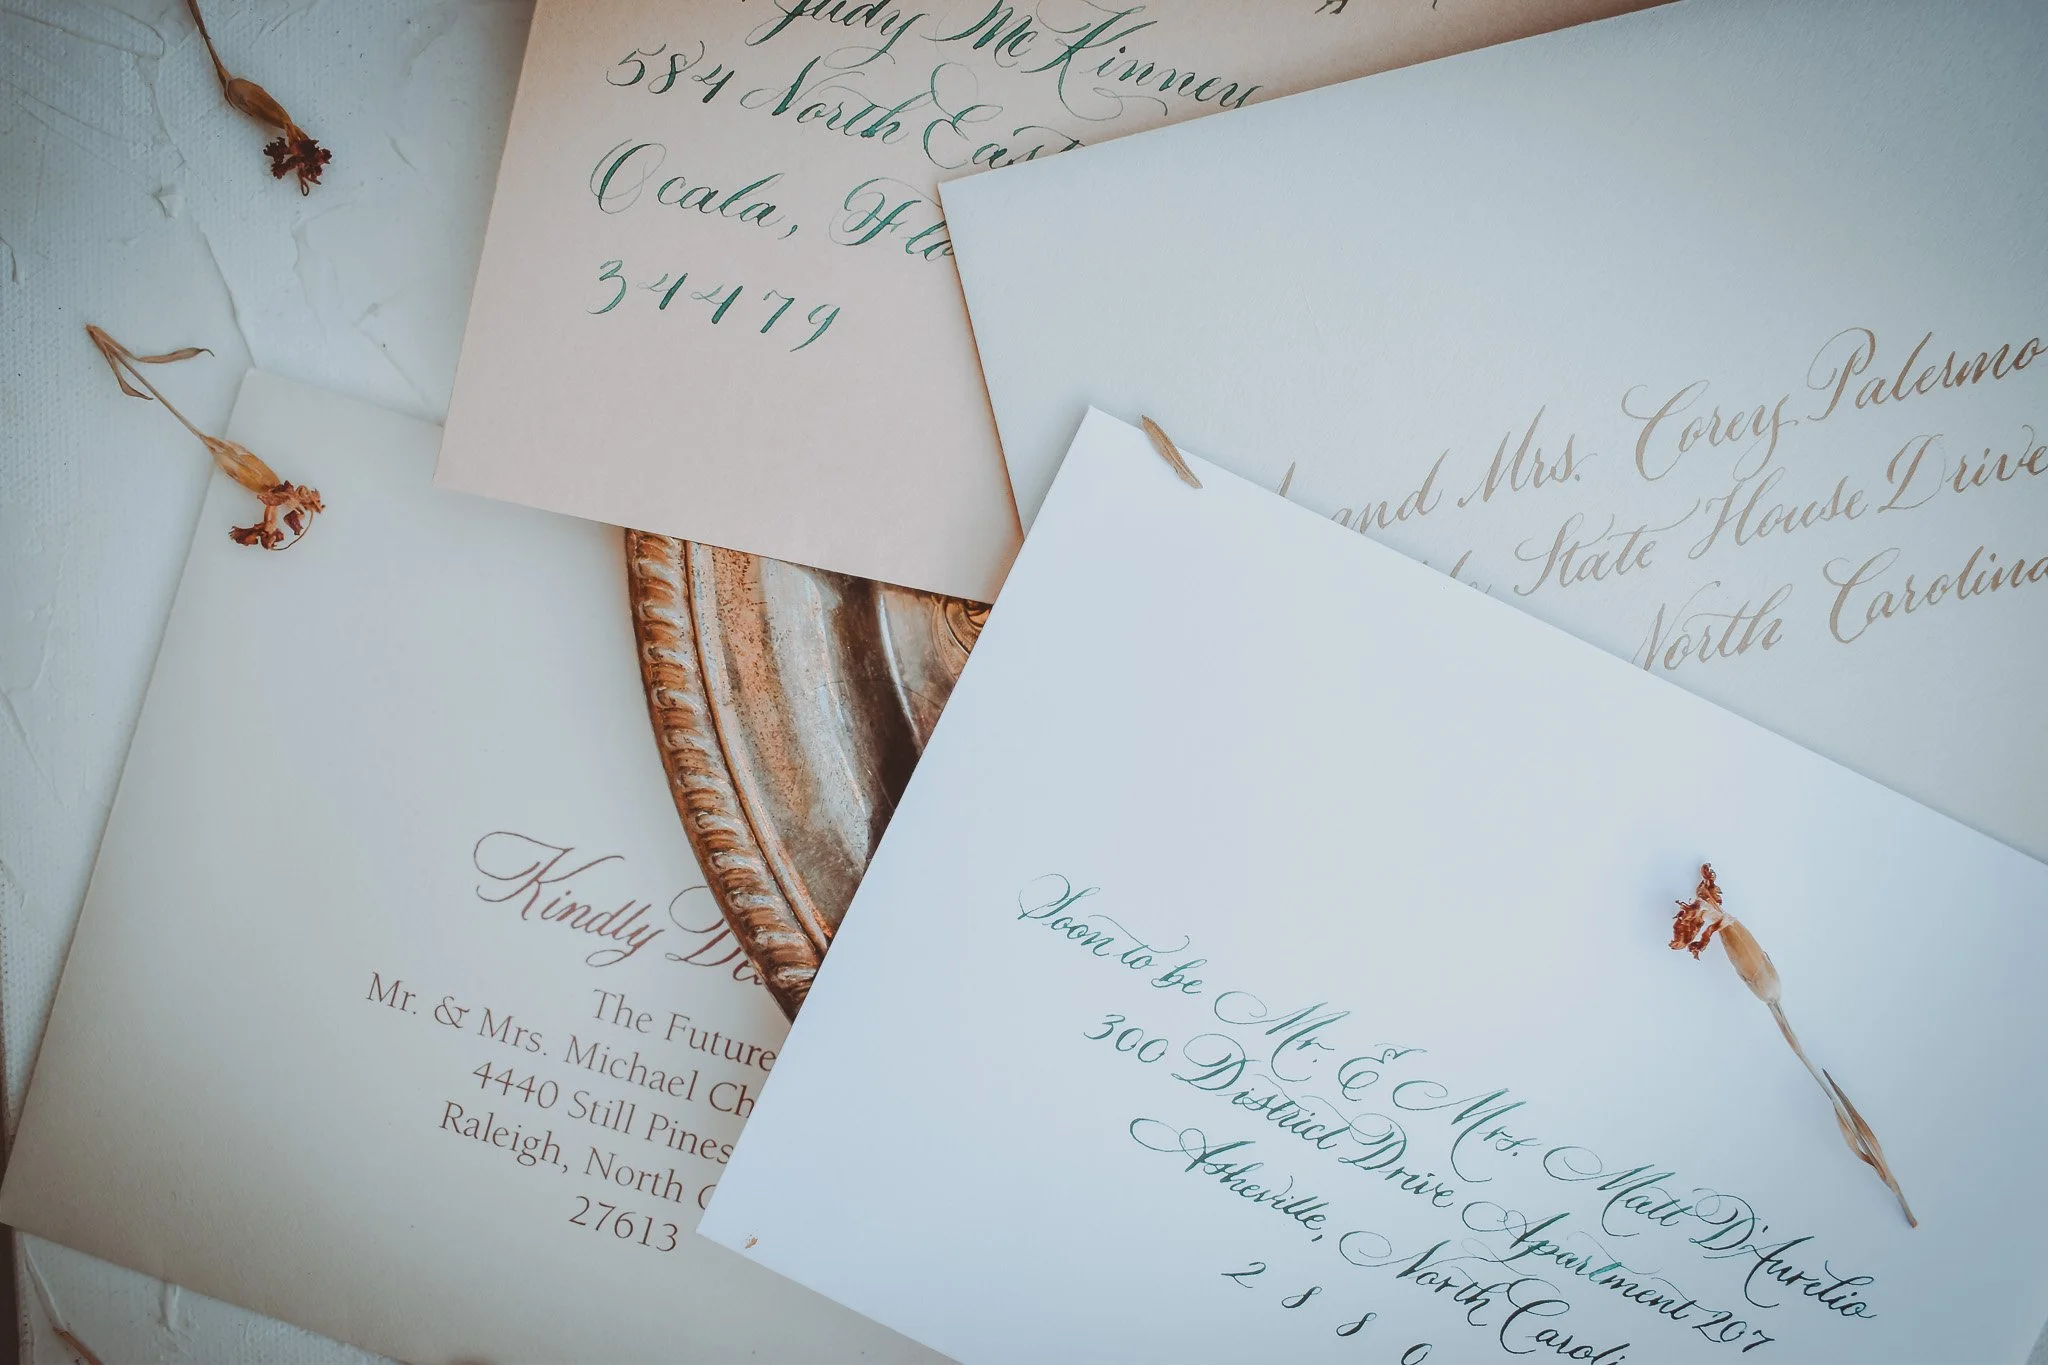 Judy McKinney
584 North East
Ocala, Flo
34479
and Mrs. Corey Palermo
State House Drive
North Carolina
Kindly De
The Future
Mr. & Mrs. Michael Ch
4440 Still Pines
Raleigh, North C
27613
Soon to be Mr. & Mrs. Matt D'Aurelio
300 District Drive Apartment 207
Asheville, North Caroli
2 8 8 0